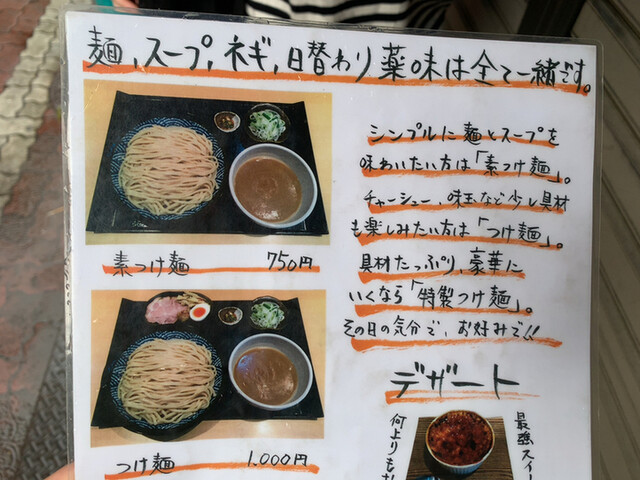 麺、スープ、ネギ、日替わり薬味は全て一緒です。
素つけ麺 750円
つけ麺 1,000円
シンプルに麺とスープを
味わいたい方は「素つけ麺」。
チャーシュー、味玉など少し具材
も楽しみたい方は「つけ麺」。
具材たっぷり、豪華に
いくなら「特製つけ麺」。
その日の気分で、お好みで!!
デザート
最強スイー
何よりも